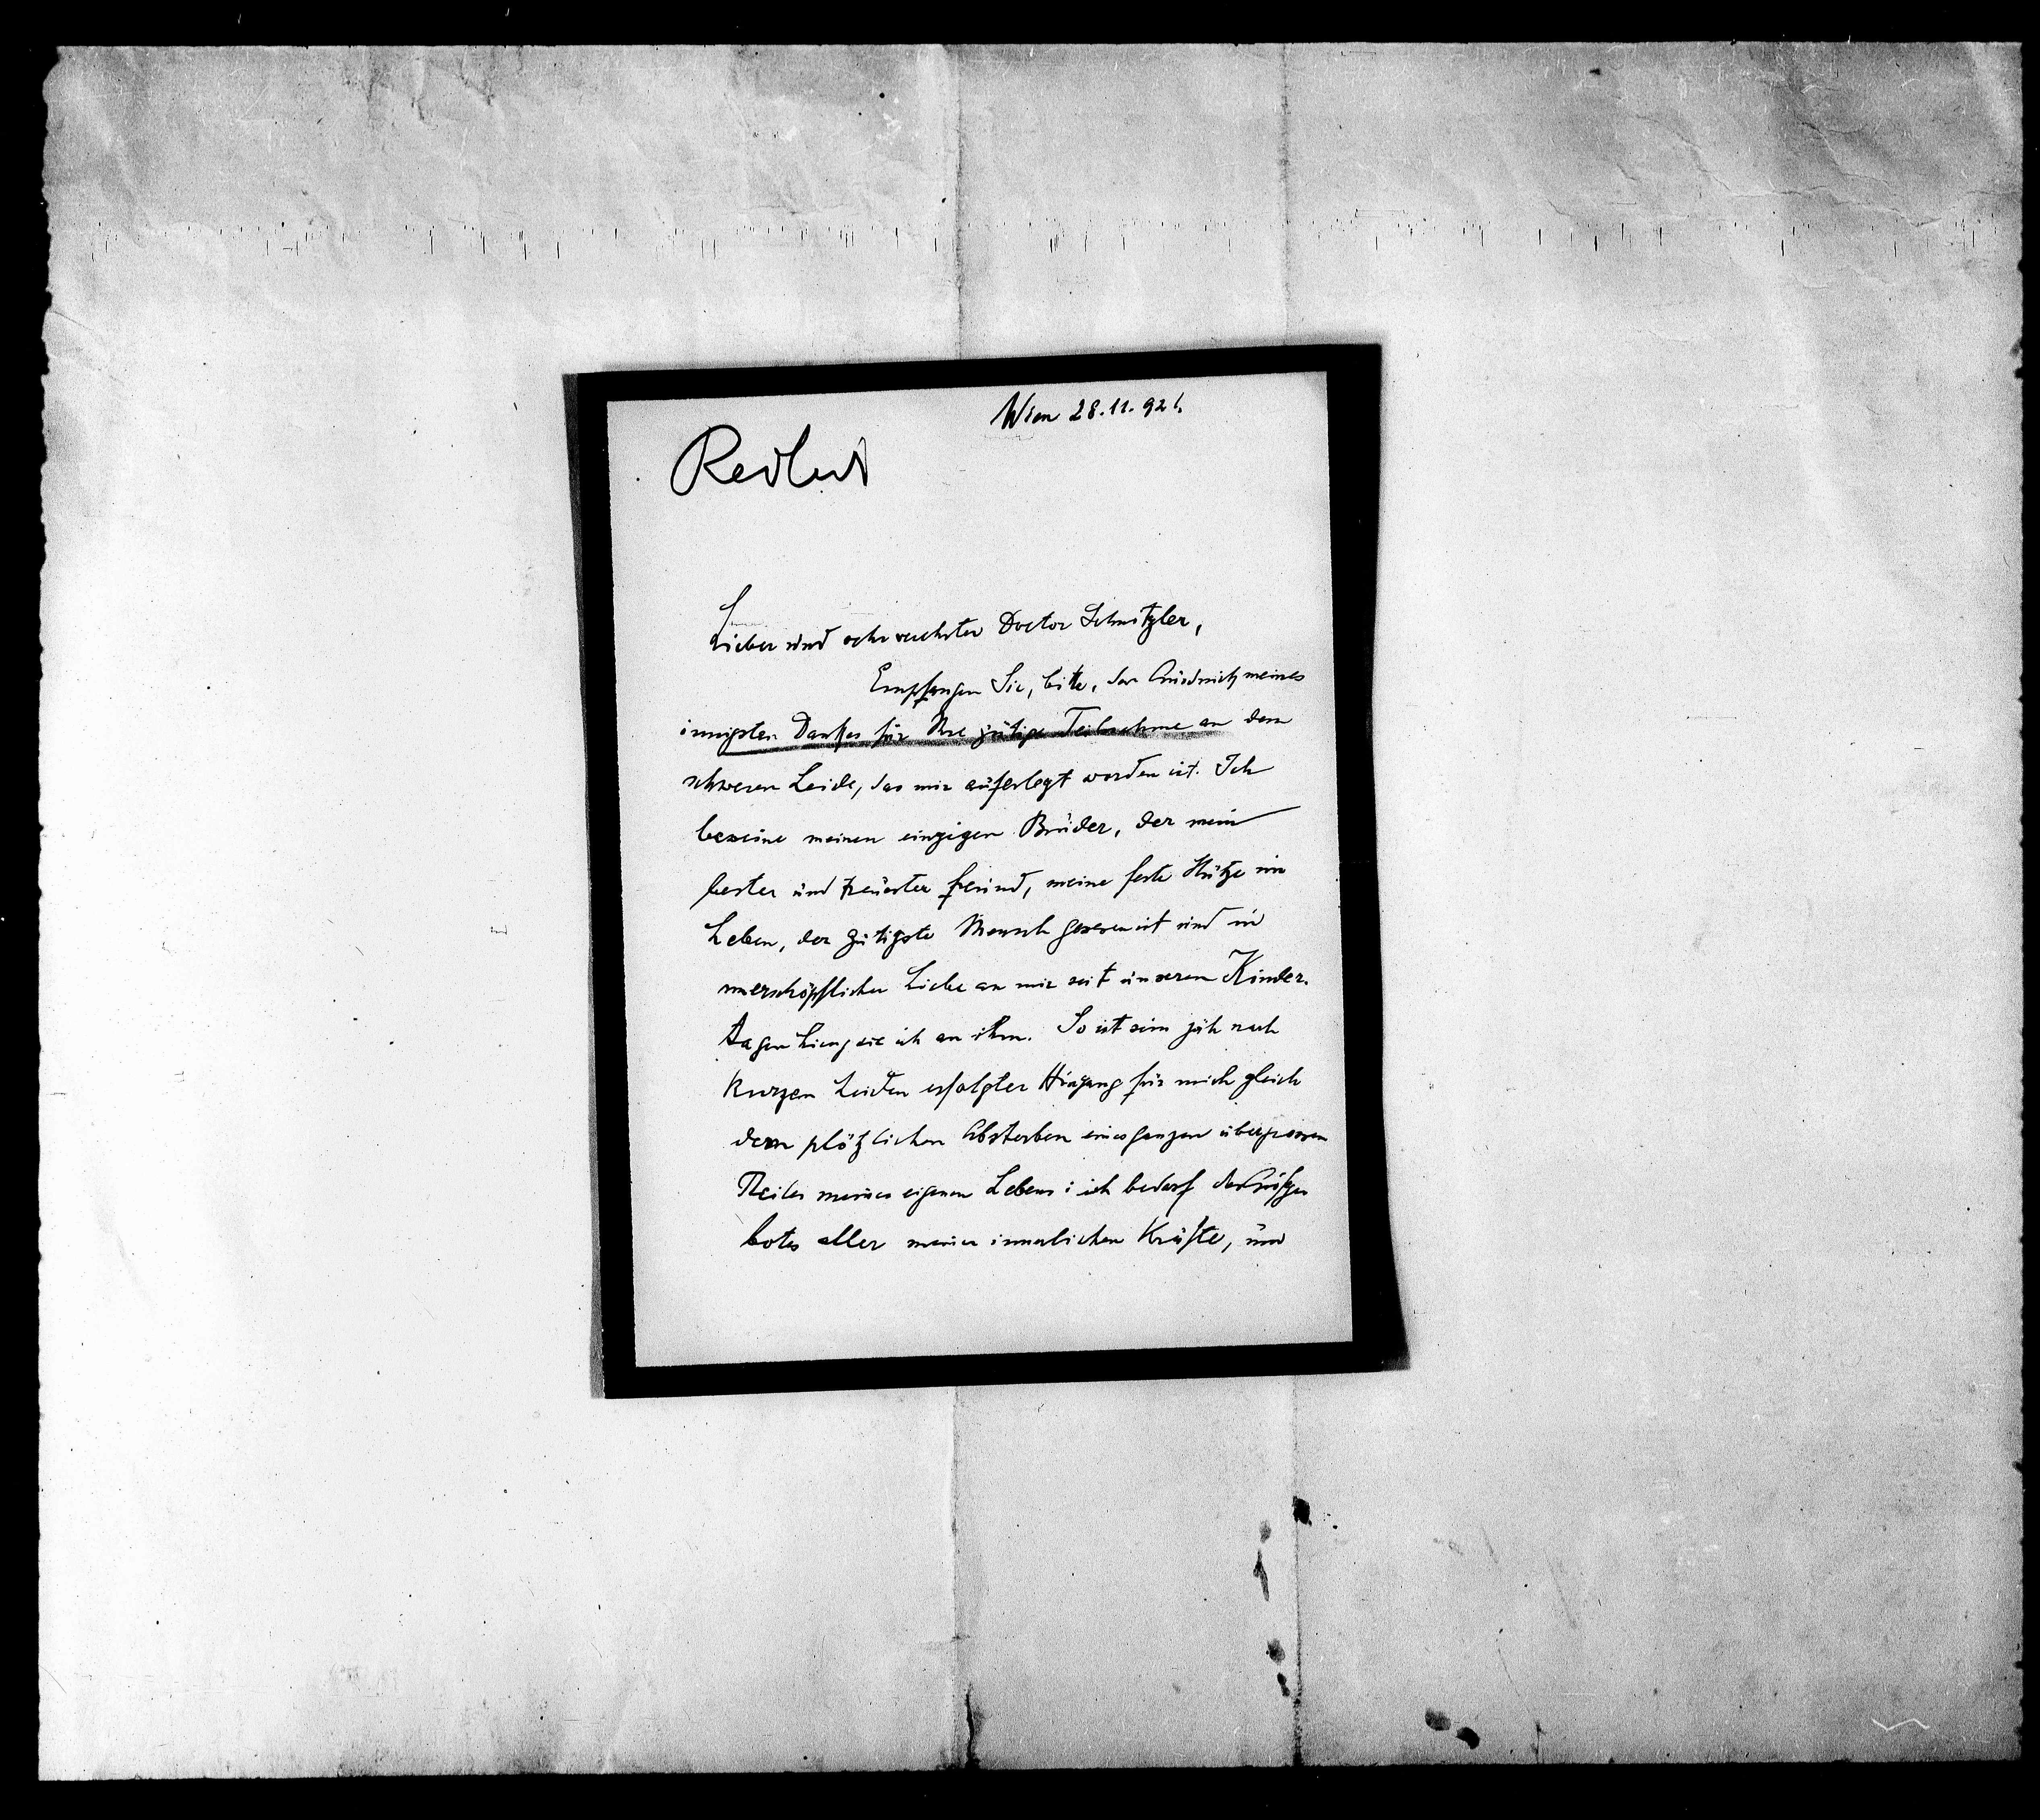 Wien 28.11.921.
Redlich
Lieber und sehr verehrter Doctor Schnitzler,
Empfangen Sie, bitte, den Ausdruck meines
innigsten Dankes für Ihre gütige Teilnahme an dem
schweren Leide, das mir auferlegt worden ist. Ich
beweine meinen einzigen Bruder, der mein
bester und treuester Freund, meine feste Stütze im
Leben, der gütigste Mensch gewesen ist und in
unerschöpflicher Liebe an mir seit unseren Kinder-
tagen hieng wie ich an ihm. So ist sein jäh nach
kurzem Leiden erfolgter Hingang für mich gleich
dem plötzlichen Absterben eines ganzen übergrossen
Teiles meines eigenen Lebens: ich bedarf des Aufge
botes aller meiner innerlichen Kräfte, um